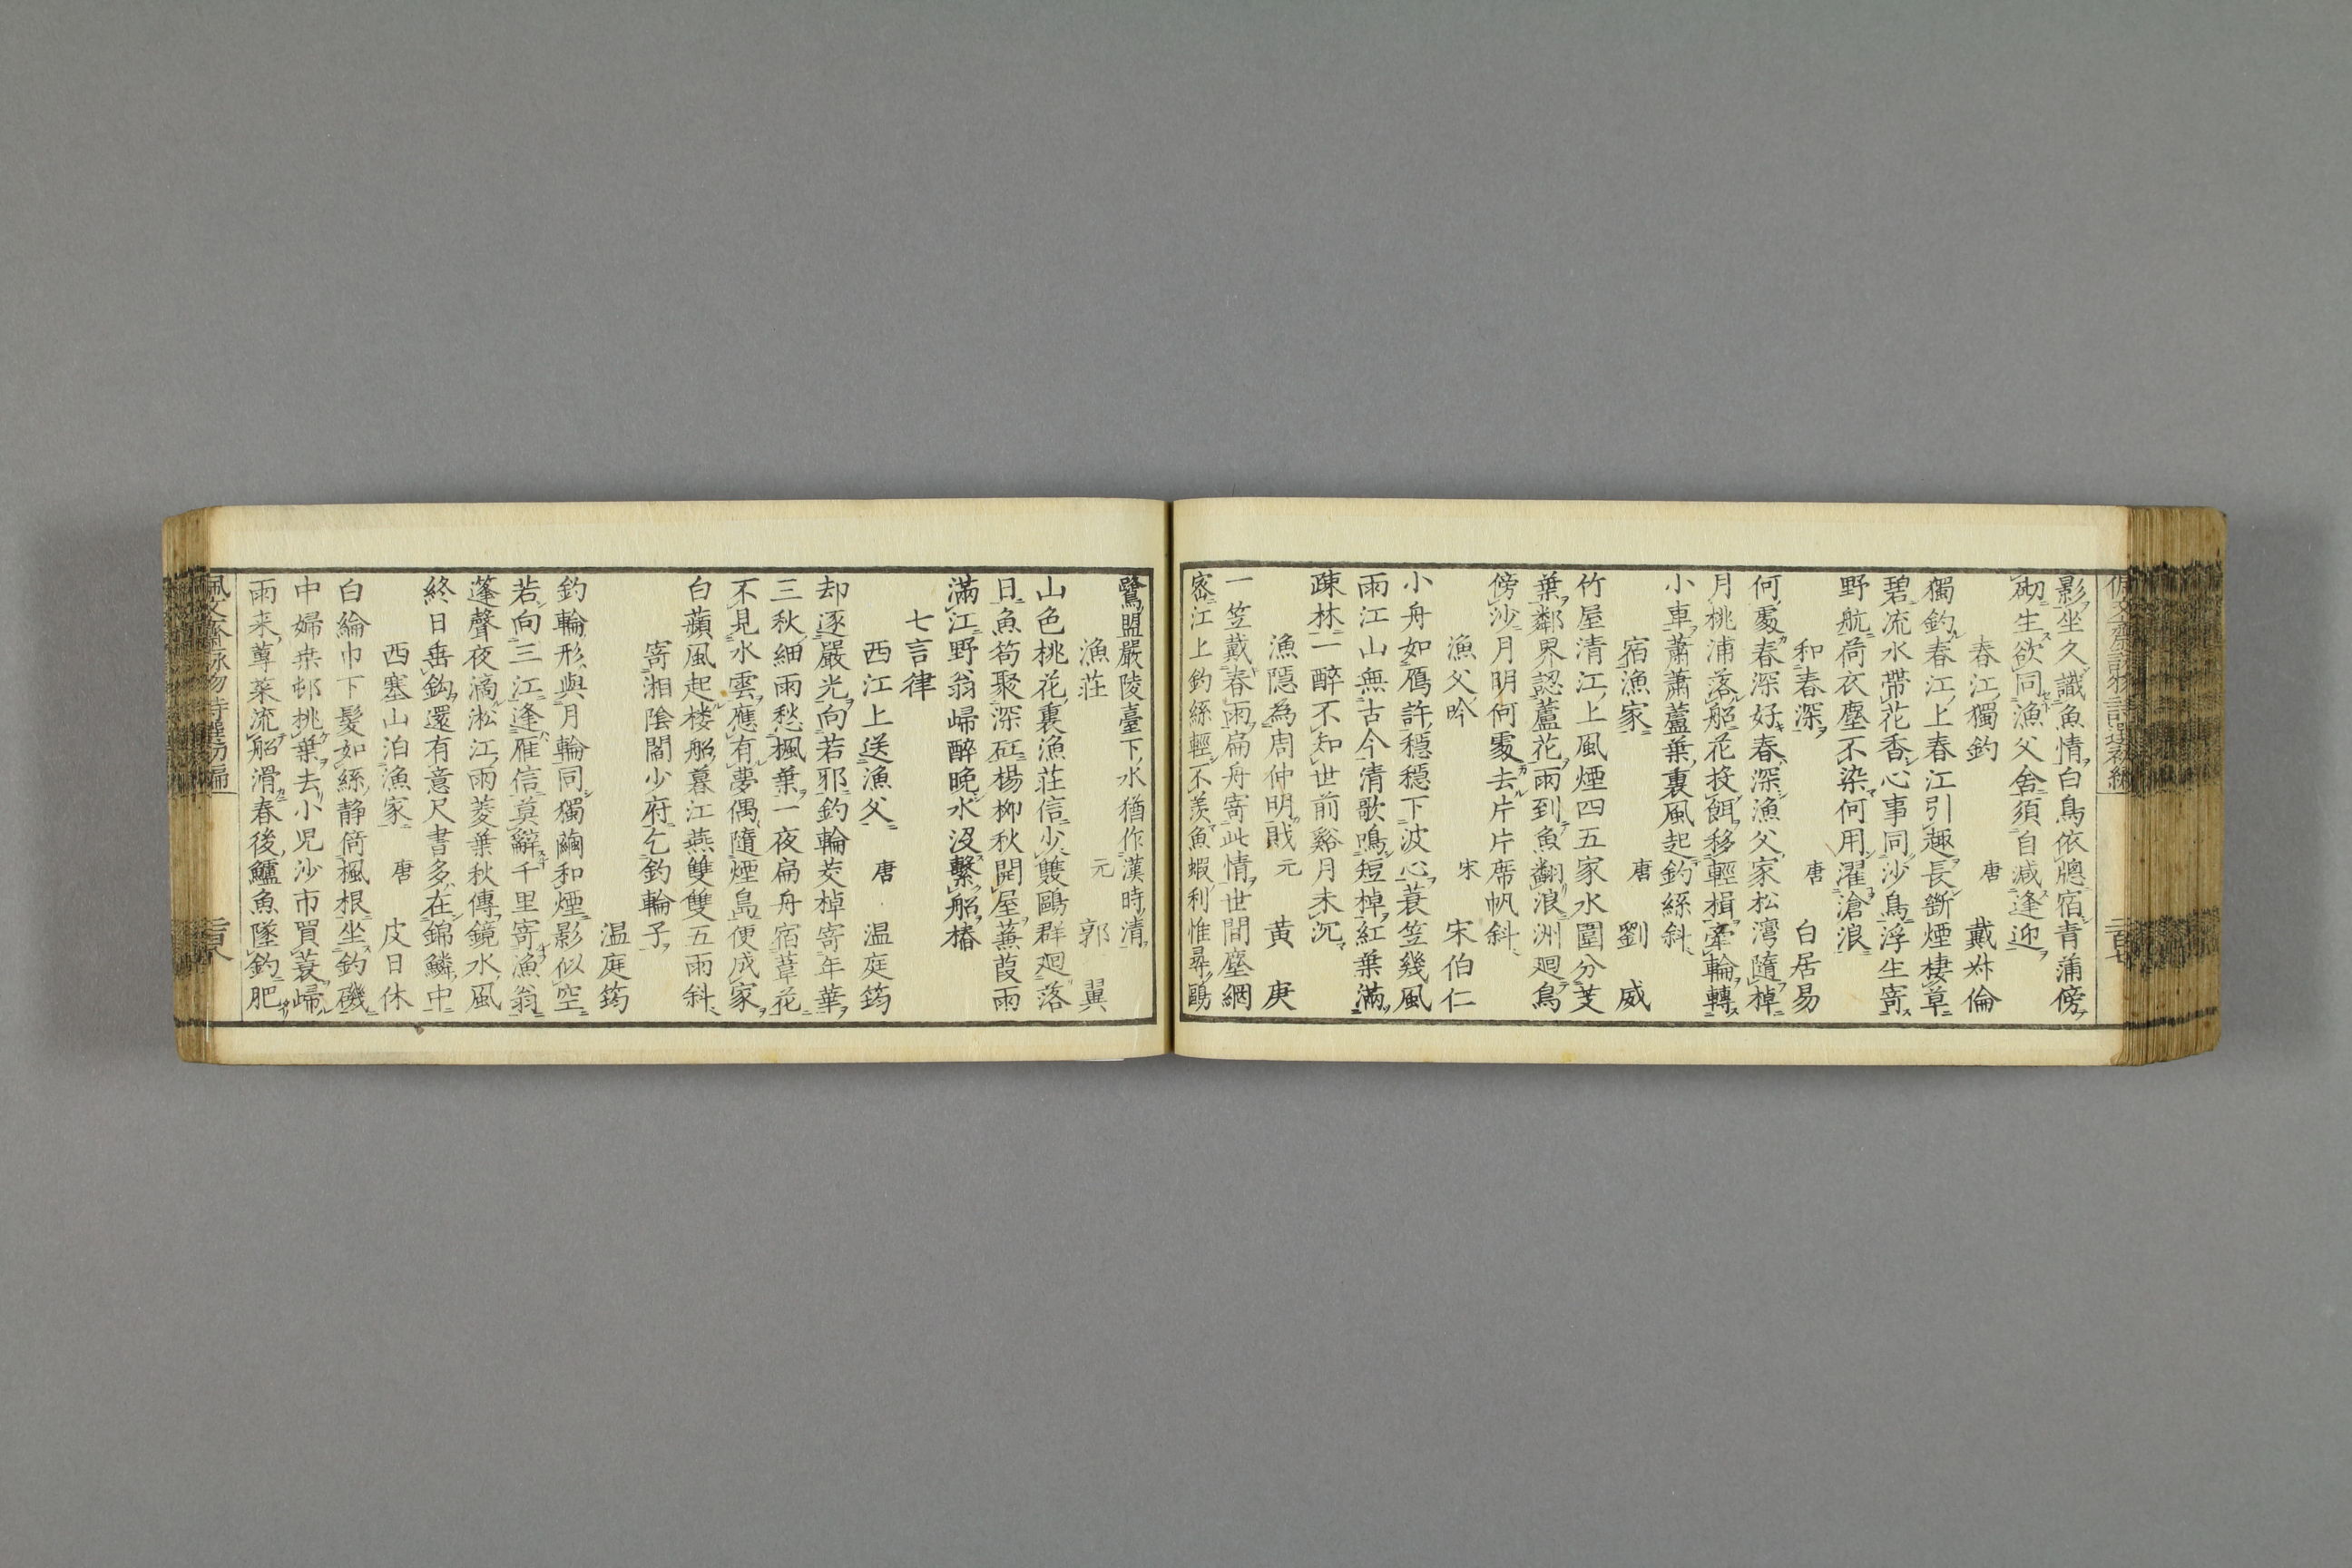 影坐久識魚情白鳥依牕宿青蒲傍
砌生欲同漁父舍須自減逢迎
春江獨釣 唐 戴叔倫
獨釣春江上春江引趣長斷煙棲草
碧流水帶花香心事同沙鳥浮生寄
野航荷衣塵不染何用濯滄浪
和春深 唐 白居易
何處春深好春深漁父家松灣隨棹
月桃浦落船花投餌移輕楫牽輪轉
小車蕭蕭蘆葉裏風起釣絲斜
宿漁家 唐 劉威
竹屋清江上風煙四五家水圍分芰
葉鄰界認蘆花雨到魚翻浪洲迴鳥
傍沙月明何處去片片席帆斜
漁父吟 宋 宋伯仁
小舟如鴈許穩穩下波心蓑笠幾風
雨江山無古今清歌鳴短棹紅葉滿
疎林一醉不知世前谿月未沉
漁隱為周仲明賦 元 黃庚
一笠戴春雨扁舟寄此情世間塵網
密江上釣絲輕不羨魚蝦利惟尋鷗
鷺盟嚴陵臺下水猶作漢時清
漁莊 元 郭翼
山色桃花裏漁莊信少雙鷗群迴落
日魚笱聚深矼楊柳秋開屋蕪葭雨
滿江野翁歸醉晚水沒繫船樁
七言律
西江上送漁父 唐 温庭筠
却逐嚴光向若邪釣輪茭棹寄年華
三秋細雨愁楓葉一夜扁舟宿葦花
不見水雲應有夢偶隨煙島便成家
白蘋風起楼船暮江燕雙雙五雨斜
寄湘陰閻少府乞釣輪子
温庭筠
釣輪形與月輪同獨繭和煙影似空
若向三江逢雁信莫辭千里寄漁翁
蓬聲夜滴淞江雨菱葉秋傳鏡水風
終日垂鈎還有意尺書多在錦鱗中
西塞山泊漁家 唐 皮日休
白綸巾下髮如絲静倚楓根坐釣磯
中婦桒邨挑葉去小児沙市買蓑歸
雨来蓴菜流船滑春後鱸魚墜釣肥
佩文齋詠物詩選初編